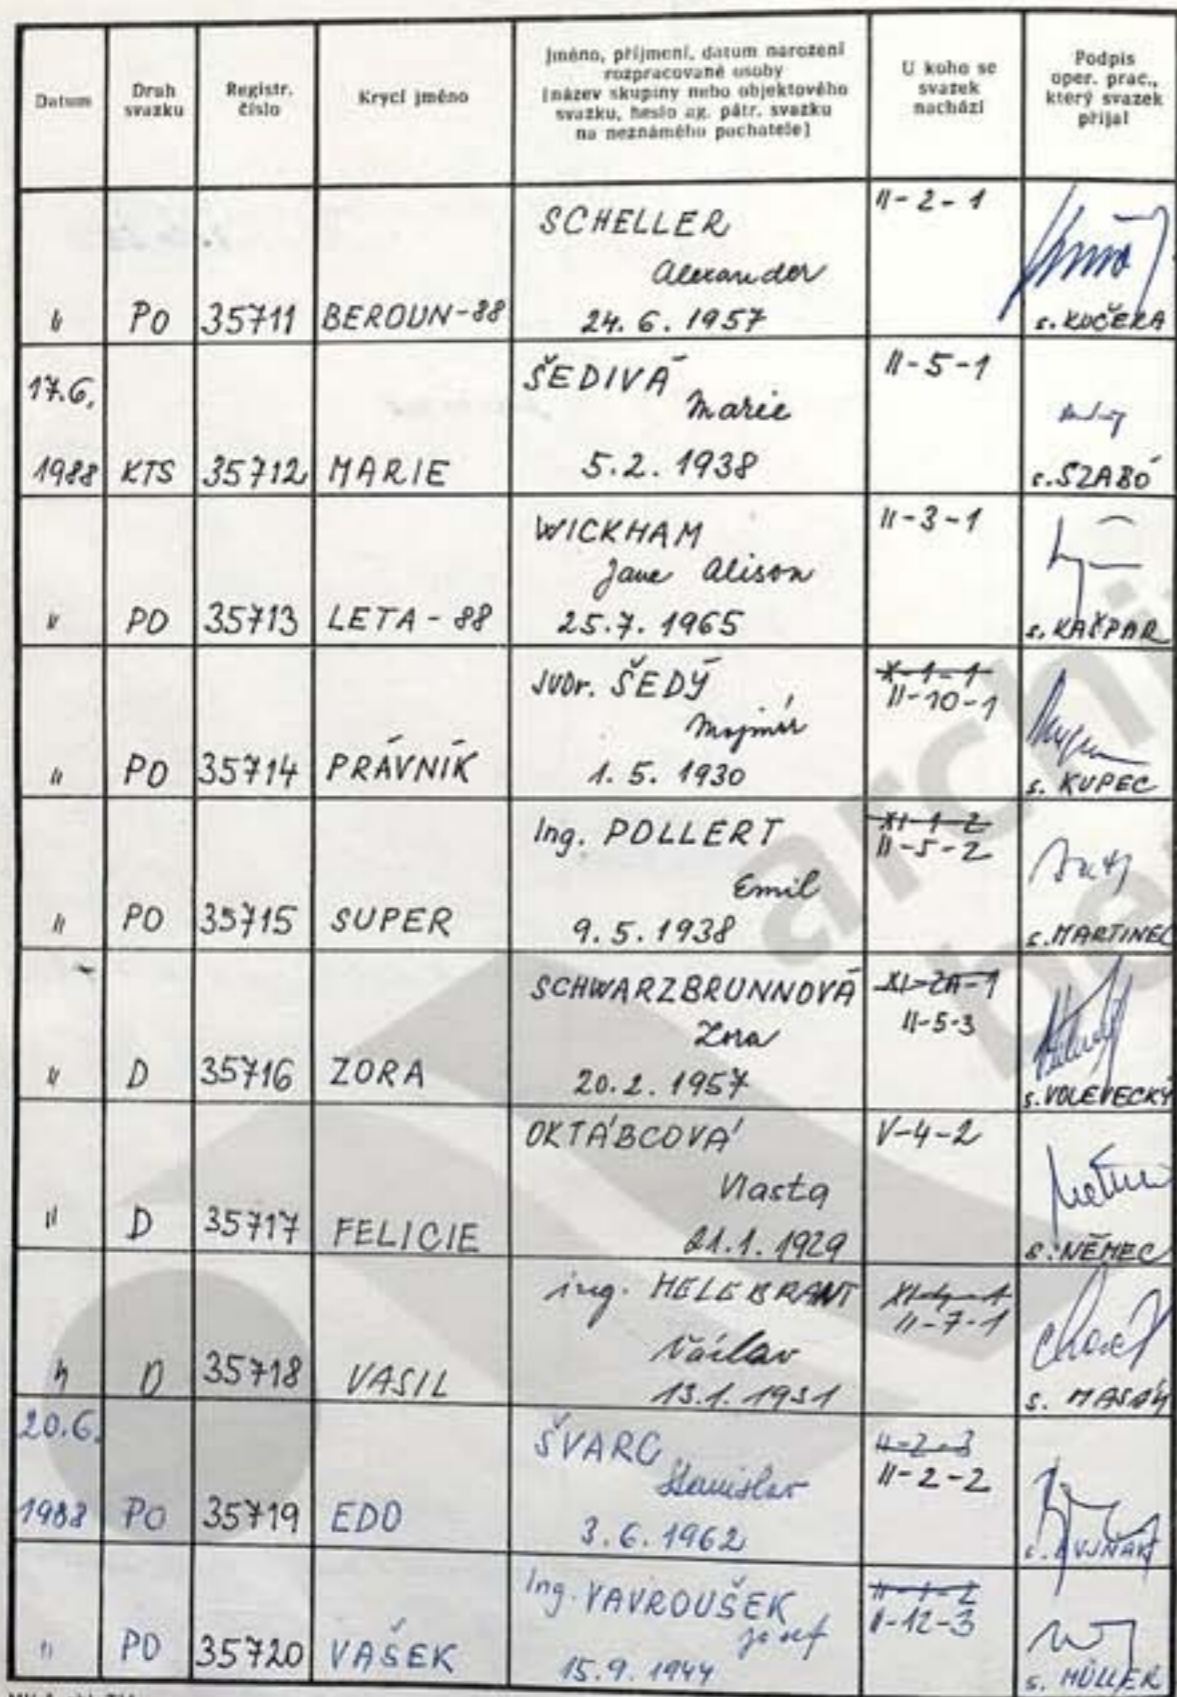 Datum
Druh
svazku
Registr.
číslo
Krycí jméno
Jméno, příjmení, datum narození
rozpracované osoby
(název skupiny nebo objektového
svazku, heslo ag. pátr. svazku
na neznámého pachatele)
U koho se
svazek
nachází
Podpis
oper. prac.,
který svazek
přijal
" PO 35711 BEROUN-88
SCHELLER
Alexander
24. 6. 1957
II-2-1
s. KUČERA
17.6.
1988 KTS 35712 MARIE
ŠEDIVÁ
Marie
5.2. 1938
II-5-1
s. SZABÓ
" PO 35713 LETA-88
WICKHAM
Jane Alison
25.7. 1965
II-3-1
s. KAŠPAR
" PO 35714 PRÁVNÍK
JUDr. ŠEDÝ
Mojmír
1. 5. 1930
X-1-1
II-10-1
s. KUPEC
" PO 35715 SUPER
Ing. POLLERT
Emil
9. 5. 1938
XI-1-2
II-5-2
s. MARTINEC
" D 35716 ZORA
SCHWARZBRUNNOVÁ
Zora
20. 2. 1957
XI-2A-1
II-5-3
s. VOLEVECKÝ
" D 35717 FELICIE
OKTÁBCOVÁ
Vlasta
21.1. 1929
V-4-2
s. NĚMEC
" D 35718 VASIL
ing. HELEBRANT
Václav
13.1. 1931
II-7-1
s. MASÁK
20.6.
1988 PO 35719 EDO
ŠVARC
Stanislav
3. 6. 1962
II-2-3
II-2-2
" PO 35720 VAŠEK
Ing. VAVROUŠEK
Josef
15. 9. 1944
II-1-2
II-12-3
s. MÜLLER